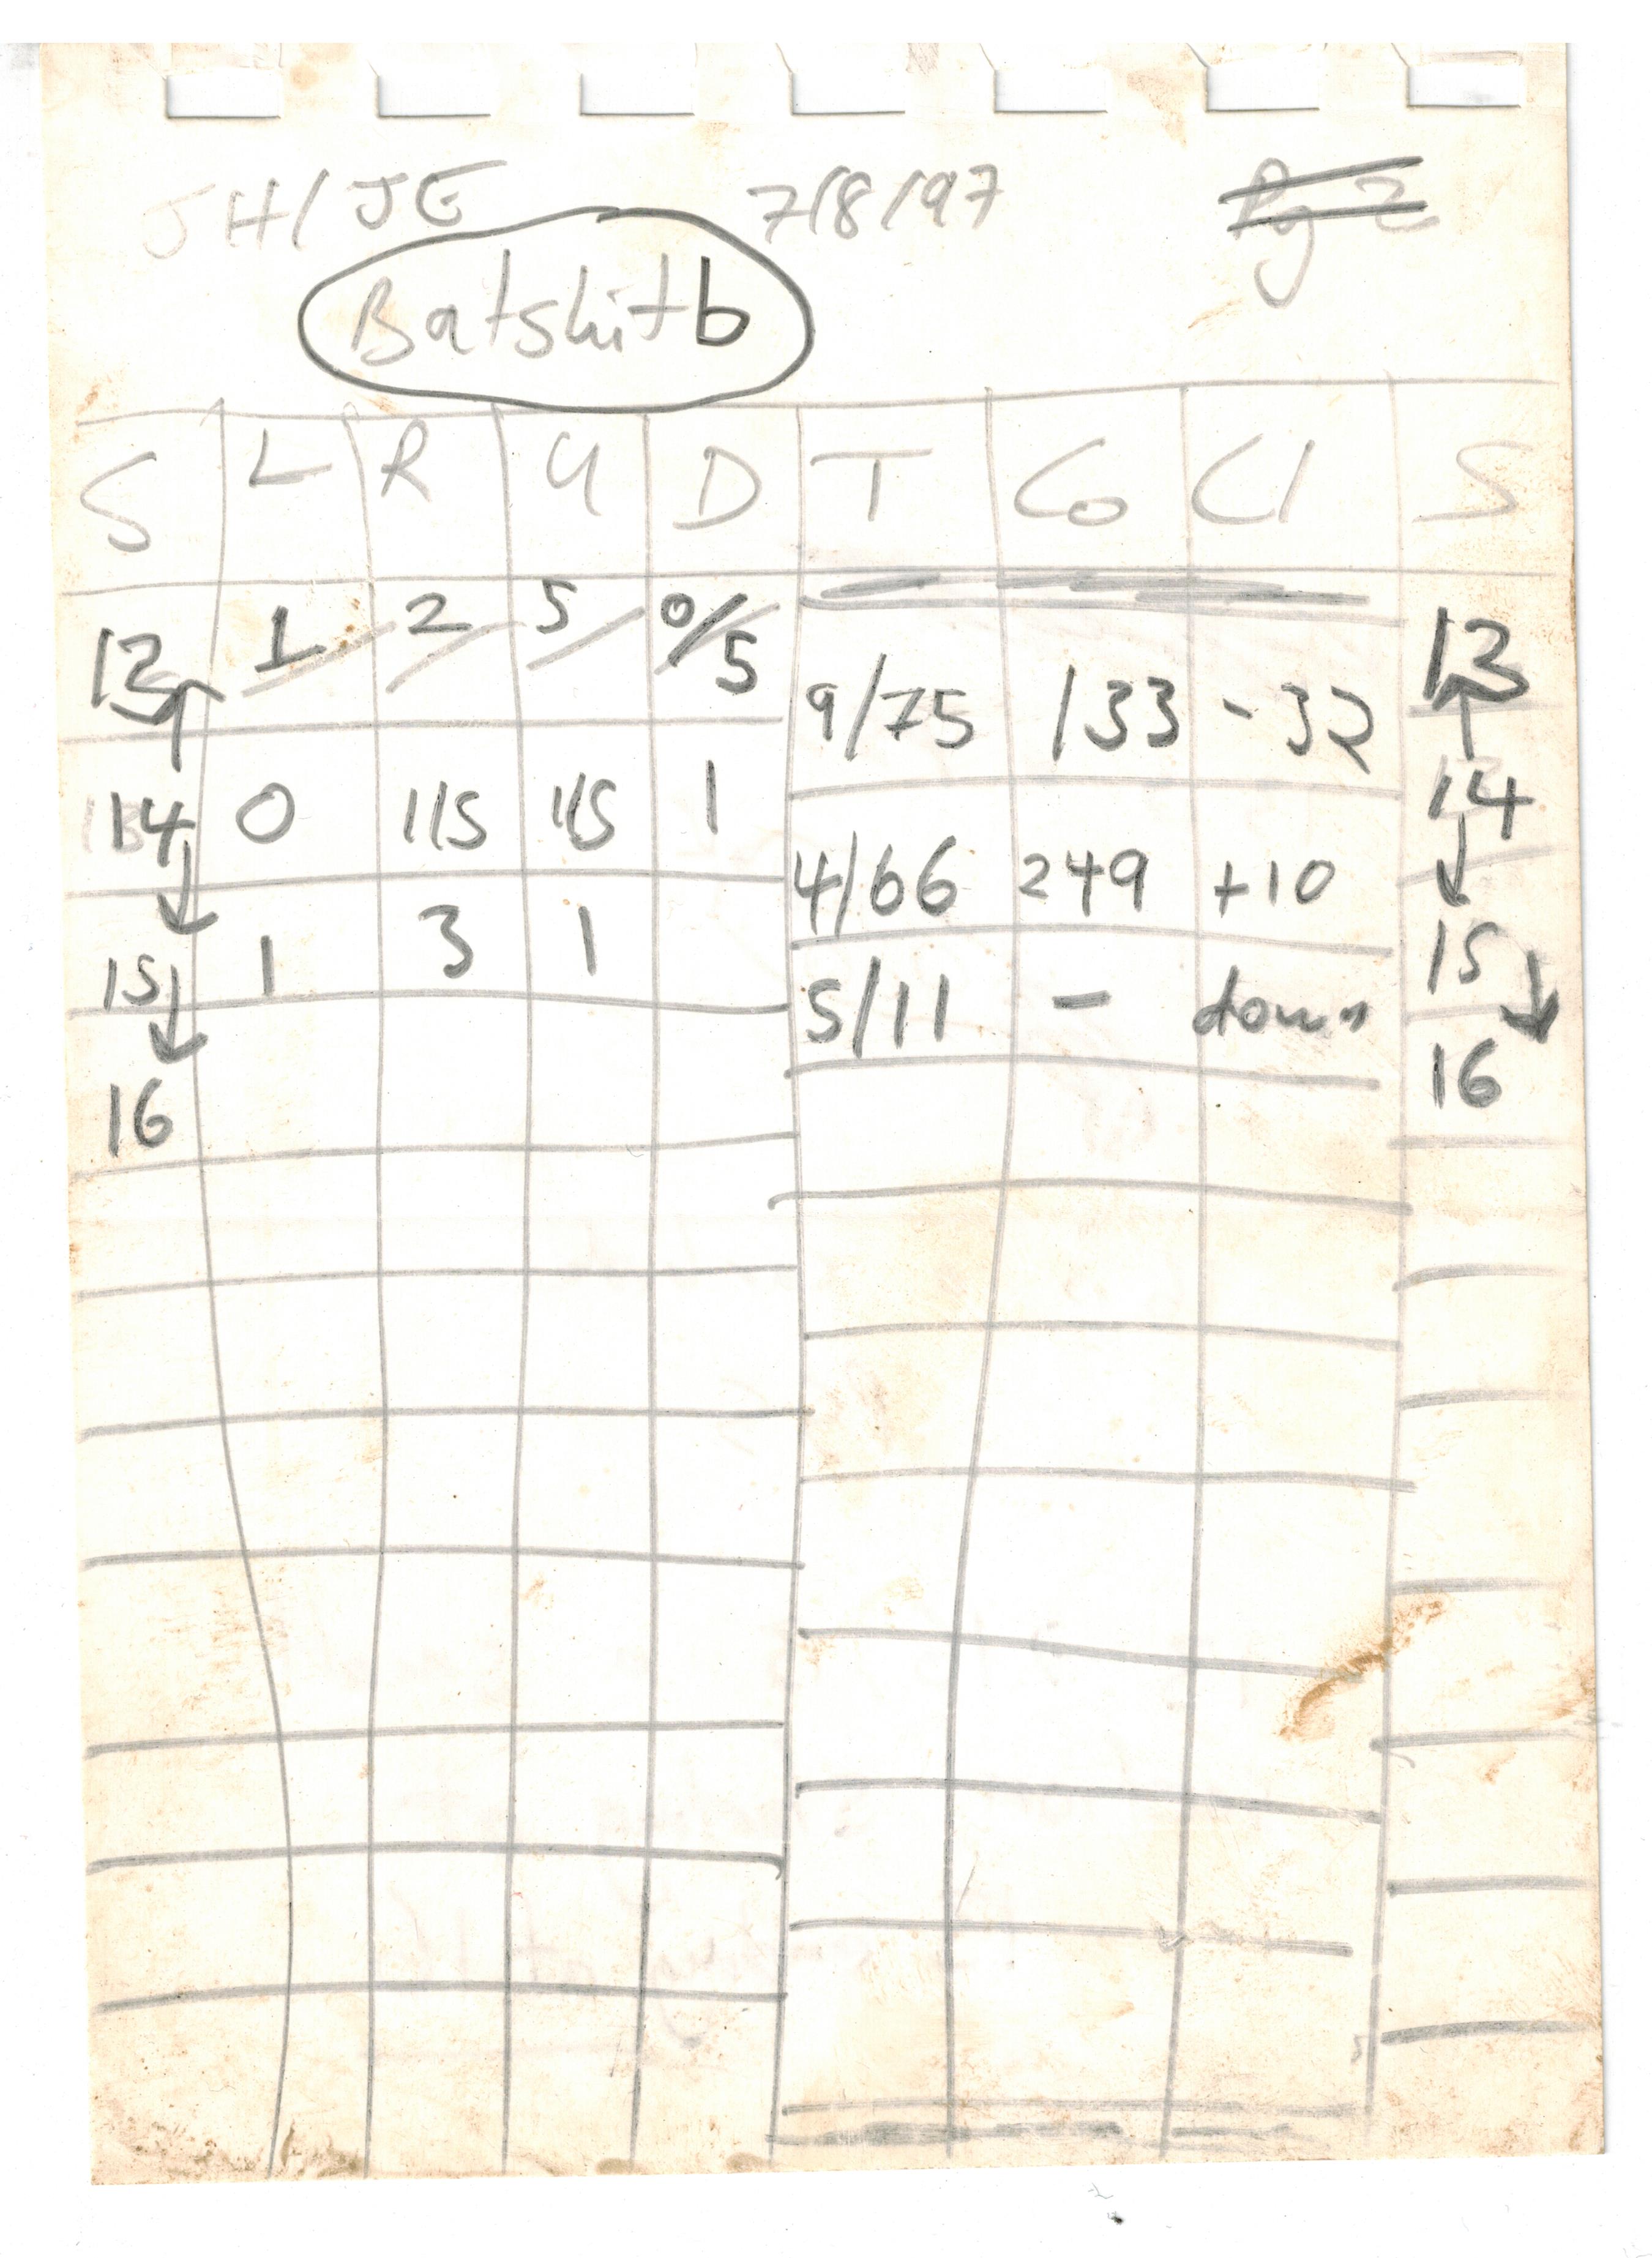 JH/JE 7/8/97 Pg 2
Batshitb
S L R U D T Co Cl S
13 1 2 5 0/5 13
9/75 133 -32
14 0 1/5 1/5 1 14
4/66 249 +10
15 1 3 1 15
5/11 - down
16 16